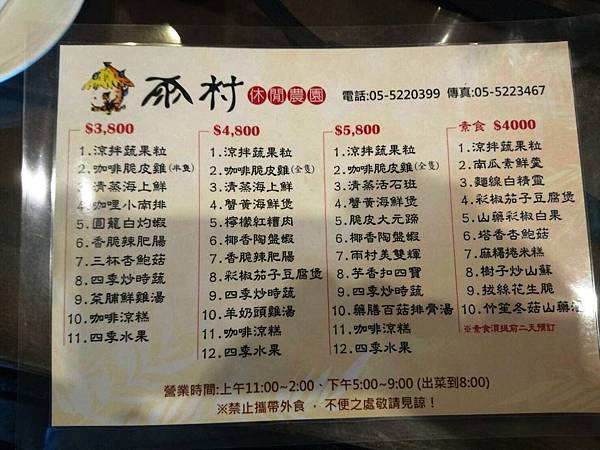 雨村 休閒農園 電話:05-5220399 傳真:05-5223467
$3,800
1.涼拌蔬果粒
2.咖啡脆皮雞(半隻)
3.清蒸海上鮮
4.咖哩小南排
5.圓龍白灼蝦
6.香脆辣肥腸
7.三杯杏鮑菇
8.四季炒時蔬
9.菜脯鮮雞湯
10.咖啡涼糕
11.四季水果
$4,800
1.涼拌蔬果粒
2.咖啡脆皮雞(全隻)
3.清蒸海上鮮
4.蟹黃海鮮煲
5.檸檬紅糟肉
6.椰香陶盤蝦
7.香脆辣肥腸
8.彩椒茄子豆腐煲
9.四季炒時蔬
10.羊奶頭雞湯
11.咖啡涼糕
12.四季水果
$5,800
1.涼拌蔬果粒
2.咖啡脆皮雞(全隻)
3.清蒸活石斑
4.蟹黃海鮮煲
5.脆皮大元蹄
6.椰香陶盤蝦
7.雨村美雙輝
8.芋香扣四寶
9.四季炒時蔬
10.藥膳百菇排骨湯
11.咖啡涼糕
12.四季水果
素食 $4000
1.涼拌蔬果粒
2.南瓜素鮮羹
3.麵線白精靈
4.彩椒茄子豆腐煲
5.山藥彩椒白果
6.塔香杏鮑菇
7.麻糬捲米糕
8.樹子炒山蘇
9.拔絲花生脆
10.竹笙冬菇山藥湯
※素食須提前二天預訂
營業時間:上午11:00~2:00、下午5:00~9:00 (出菜到8:00)
※禁止攜帶外食，不便之處敬請見諒！